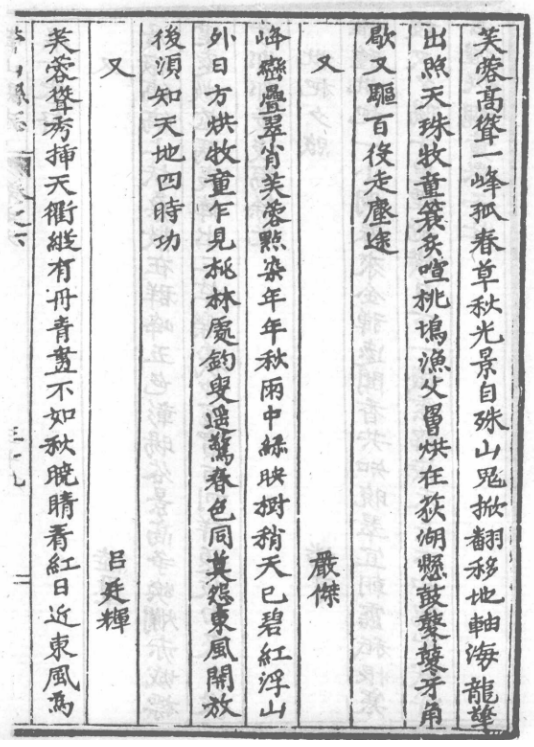 芙蓉高聳一峰孤春草秋光景自殊山鬼掀翻移地軸海龍擎
出照天珠牧童簑炙喧桃塢漁父罾烘在荻湖懸鼓鼕鼕牙角
歇又驅百役走塵途
又 嚴傑
峰巒疊翠肖芙蓉點染年年秋雨中綠映樹稍天已碧紅浮山
外日方烘牧童乍見桃林處釣叟遥驚春色同莫怨東風開放
後須知天地四時功
又 吕廷輝
芙蓉聳秀揷天衢縱有丹青畫不如秋曉晴看紅日近東風爲
三十九